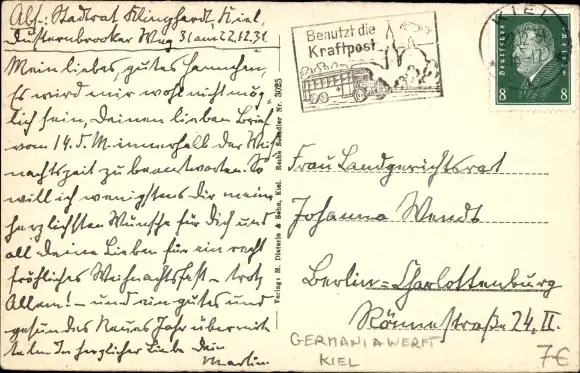 Abs. Stadtrat Klinghardt, Kiel,
Düsternbrooker Weg 31 am 22.12.31
Mein liebes, gutes Hannchen,
Es wird mir wohl nicht mög-
lich sein, Deinen lieben Brief
vom 14. d. M. innerhalb der Weih-
nachtszeit zu beantworten. So
will ich wenigstens Dir meine
herzlichsten Wünsche für Dich und
all Deine Lieben für ein recht
fröhliches Weihnachtsfest - trotz
Allem! - und ein gutes und
gesundes Neues Jahr übermit-
teln. In herzlicher Liebe Dein
Martin.
Verlag: M. Dieterle & Sohn, Kiel. Reihe Nr. 3025
Benutzt die
Kraftpost
KIEL
Deutsches Reich
8 8
Frau Landgerichtsrat
Johanna Wendt
Berlin=Charlottenburg
Rönnestraße 24, II.
GERMANIAWERFT
KIEL
7€